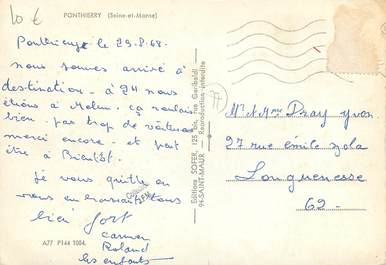 10 €
PONTHIERRY (Seine-et-Marne)
Ponthierry le 29.8.68.
nous sommes arrivé à
destination - à 24 nous
étions à Melun. ça roulait
bien. pas trop de voitures
merci encore. et peut
être à Bientôt.
je vous quitte en
vous embrassant tous
bien fort
Carmen
Roland
les enfants
A77 P144 1004.
Editions SOFER, 125 bis, rue Garibaldi
94-SAINT-MAUR — Reproduction interdite
77
Mr et Mme Dray Yvon
27 rue émile zola
Longuenesse
62-